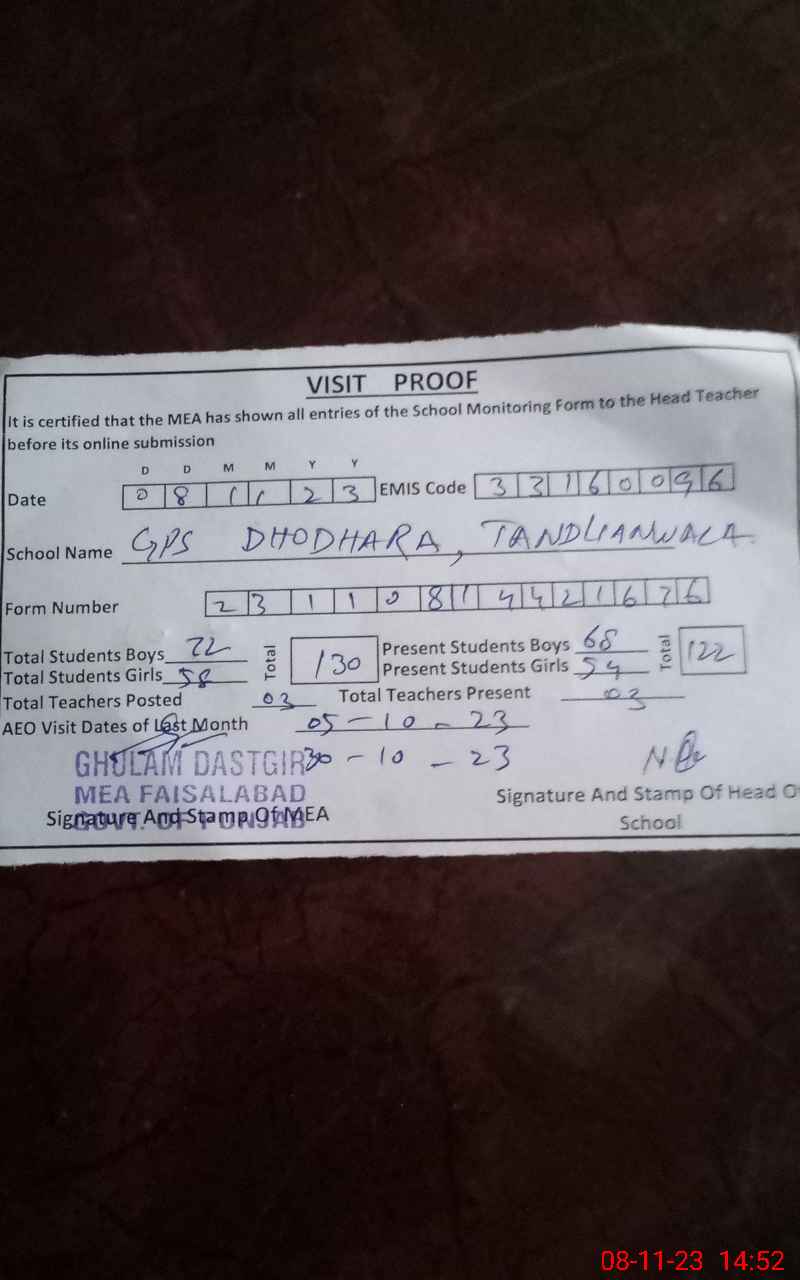 VISIT PROOF
It is certified that the MEA has shown all entries of the School Monitoring Form to the Head Teacher
before its online submission
D D M M Y Y
Date 0 8 1 1 2 3 EMIS Code 3 3 1 6 0 0 9 6
School Name GPS DHODHARA, TANDLIANWALA
Form Number 2 3 1 1 0 8 1 4 4 2 1 6 7 6
Total Students Boys 72 Total 130 Present Students Boys 68 Total 122
Total Students Girls 58 Present Students Girls 54
Total Teachers Posted 03 Total Teachers Present 03
AEO Visit Dates of Last Month 05-10-23
30-10-23
GHULAM DASTGIR
MEA FAISALABAD
GOVT. OF PUNJAB
Signature And Stamp Of MEA
Signature And Stamp Of Head O
School
08-11-23 14:52